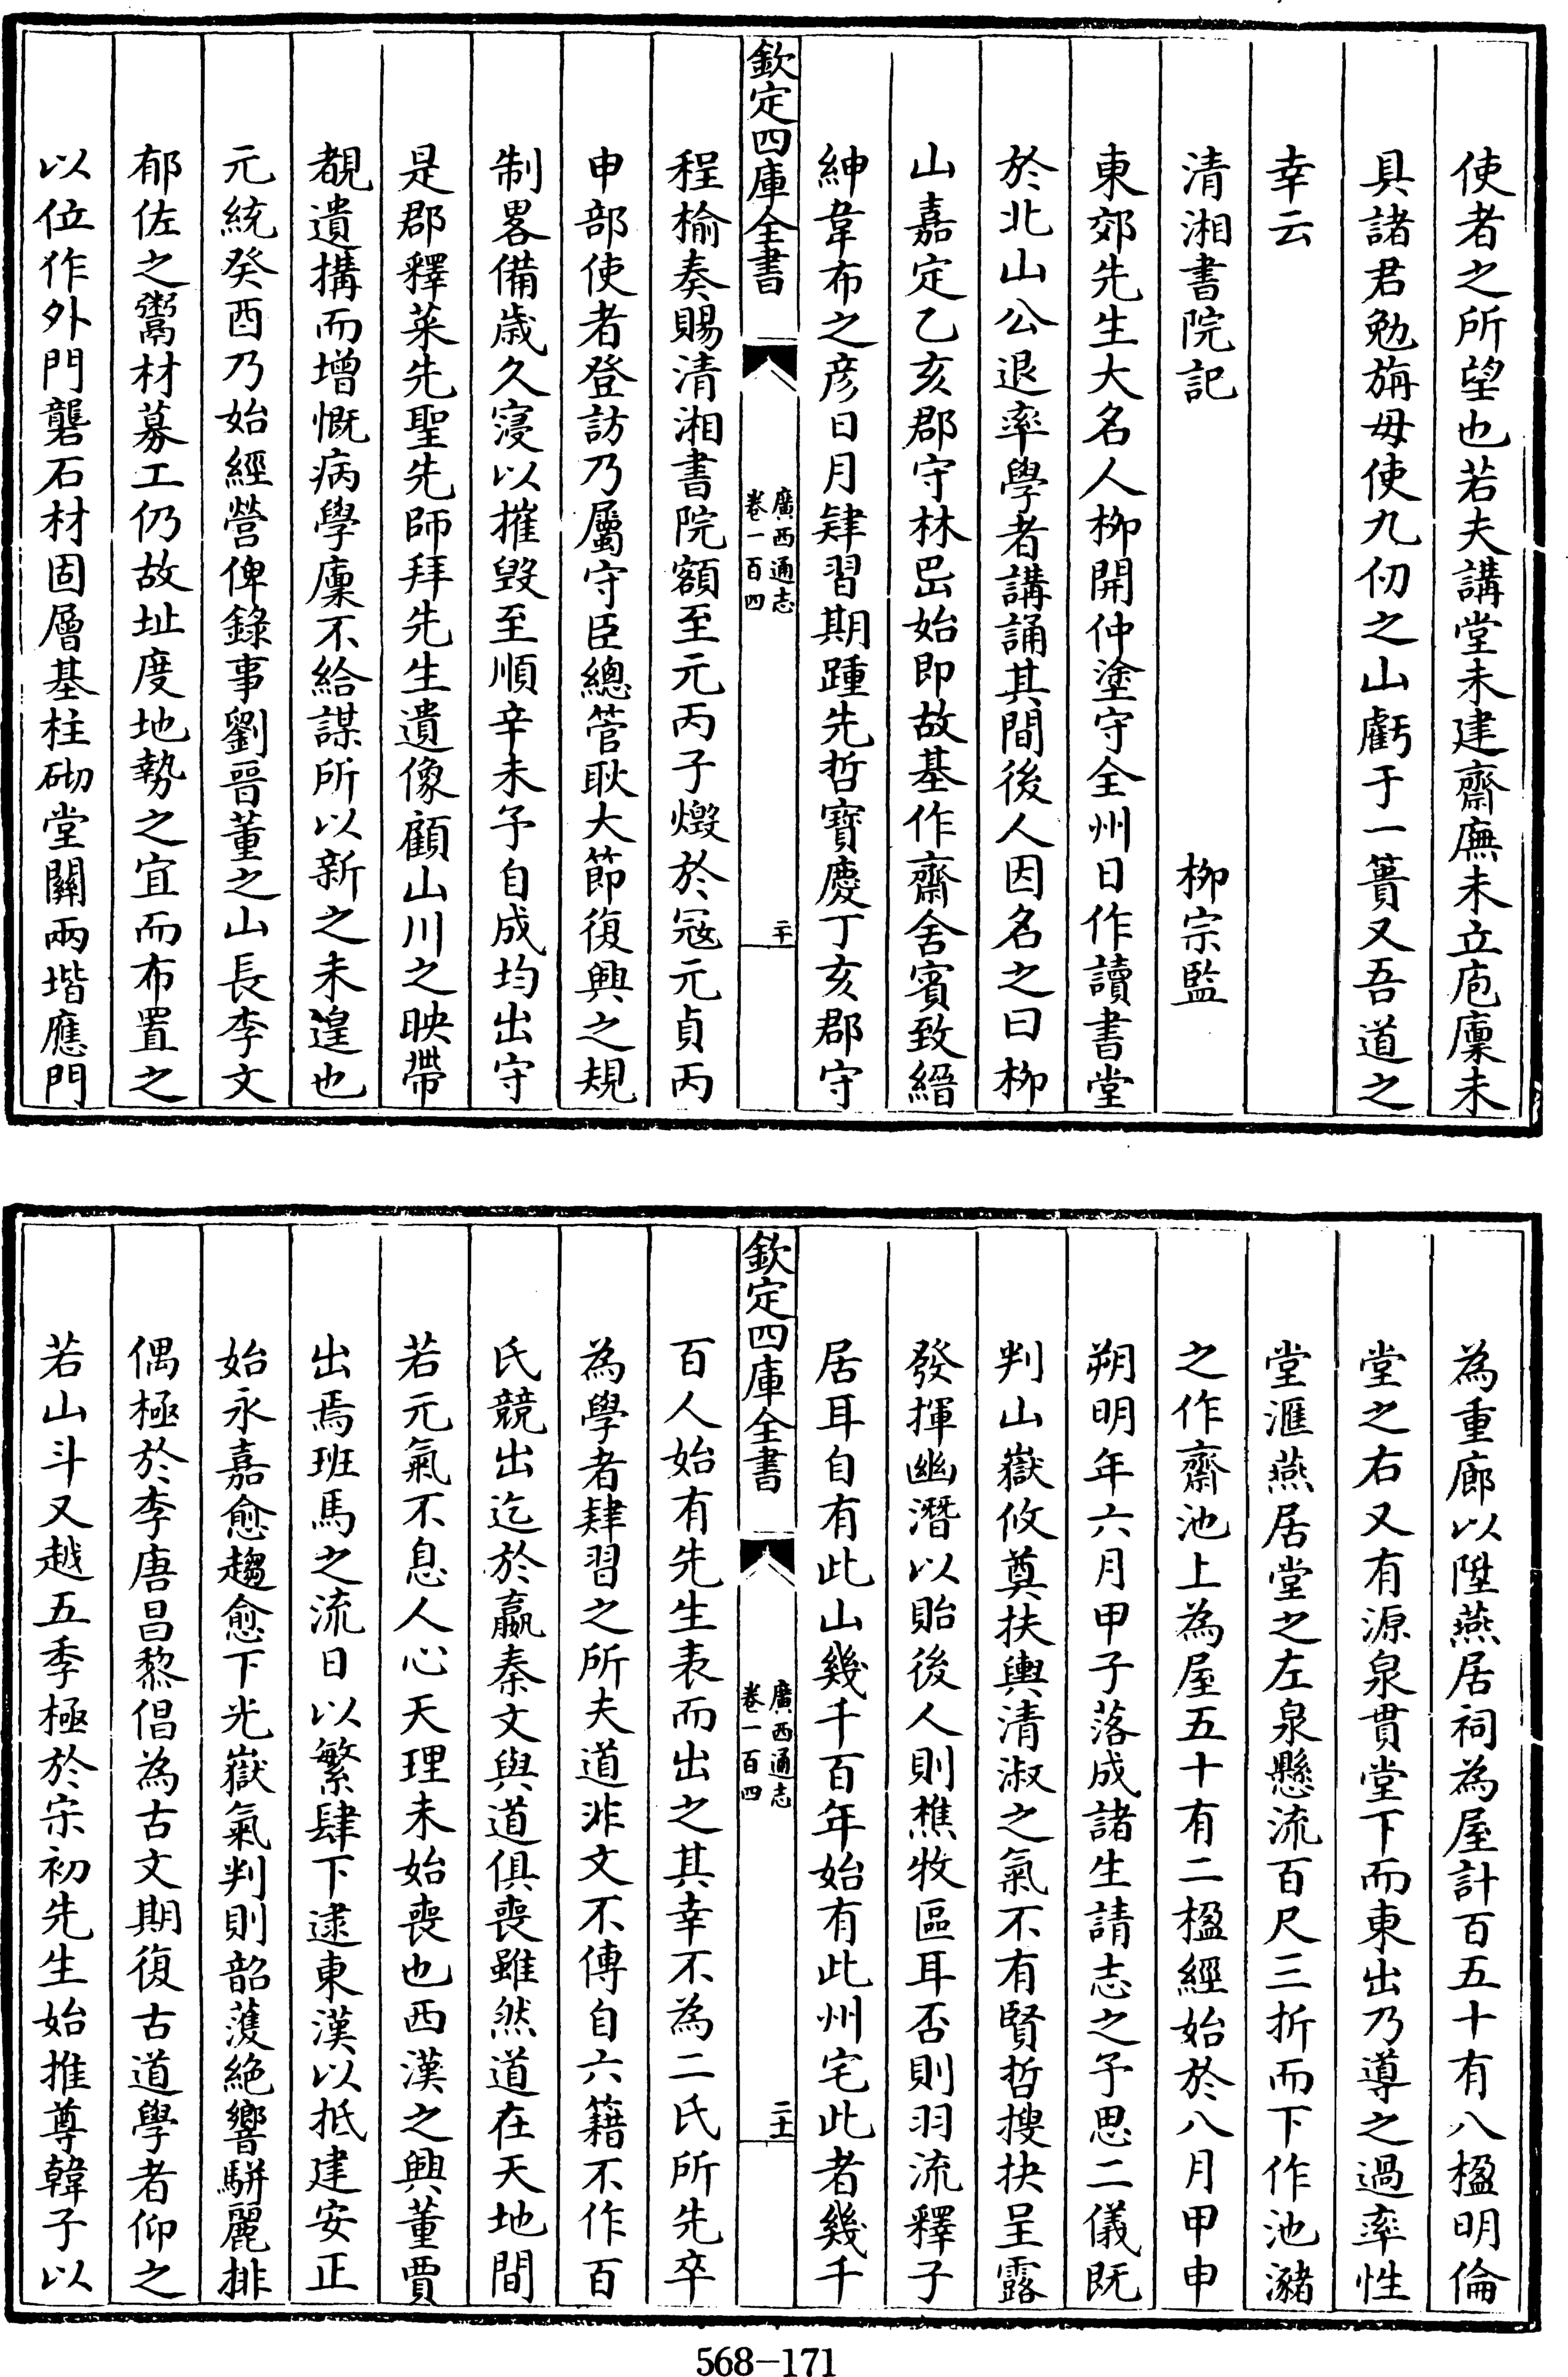 使者之所望也若夫講堂未建齋廡未立庖廩未
具諸君勉旃毋使九仞之山虧于一簣又吾道之
幸云
清湘書院記
柳宗監
東郊先生大名人栁開仲塗守全州日作讀書堂
於北山公退率學者講誦其間後人因名之曰栁
山嘉定乙亥郡守林岊始即故基作齋舍賓致縉
紳韋布之彦日月肄習期踵先哲寳慶丁亥郡守
欽定四庫全書
廣西通志
卷一百四
二十
程榆奏賜清湘書院額至元丙子燬於冦元貞丙
申部使者登訪乃屬守臣總管耿大節復興之規
制畧備歳久寖以摧毁至順辛未予自成均出守
是郡釋菜先聖先師拜先生遺像顧山川之映帶
覩遺搆而增慨病學廩不給謀所以新之未遑也
元統癸酉乃始經營俾錄事劉晉董之山長李文
郁佐之鬻材募工仍故址度地勢之宜而布置之
以位作外門礱石材固層基柱砌堂闢兩堦應門
為重廊以陞燕居祠為屋計百五十有八楹明倫
堂之右又有源泉貫堂下而東出乃導之過率性
堂滙燕居堂之左泉懸流百尺三折而下作池瀦
之作齋池上為屋五十有二楹經始於八月甲申
朔明年六月甲子落成諸生請志之予思二儀既
判山嶽攸奠扶輿清淑之氣不有賢哲搜抉呈露
發揮幽潛以貽後人則樵牧區耳否則羽流釋子
居耳自有此山幾千百年始有此州宅此者幾千
欽定四庫全書
廣西通志
卷一百四
二十一
百人始有先生表而出之其幸不為二氏所先卒
為學者肄習之所夫道非文不傳自六籍不作百
氏競出迄於嬴秦文與道俱喪雖然道在天地間
若元氣不息人心天理未始喪也西漢之興董賈
出焉班馬之流日以繁肆下逮東漢以抵建安正
始永嘉愈趨愈下光嶽氣判則韶濩絶響駢麗排
偶極於李唐昌黎倡為古文期復古道學者仰之
若山斗又越五季極於宋初先生始推尊韓子以
568-171